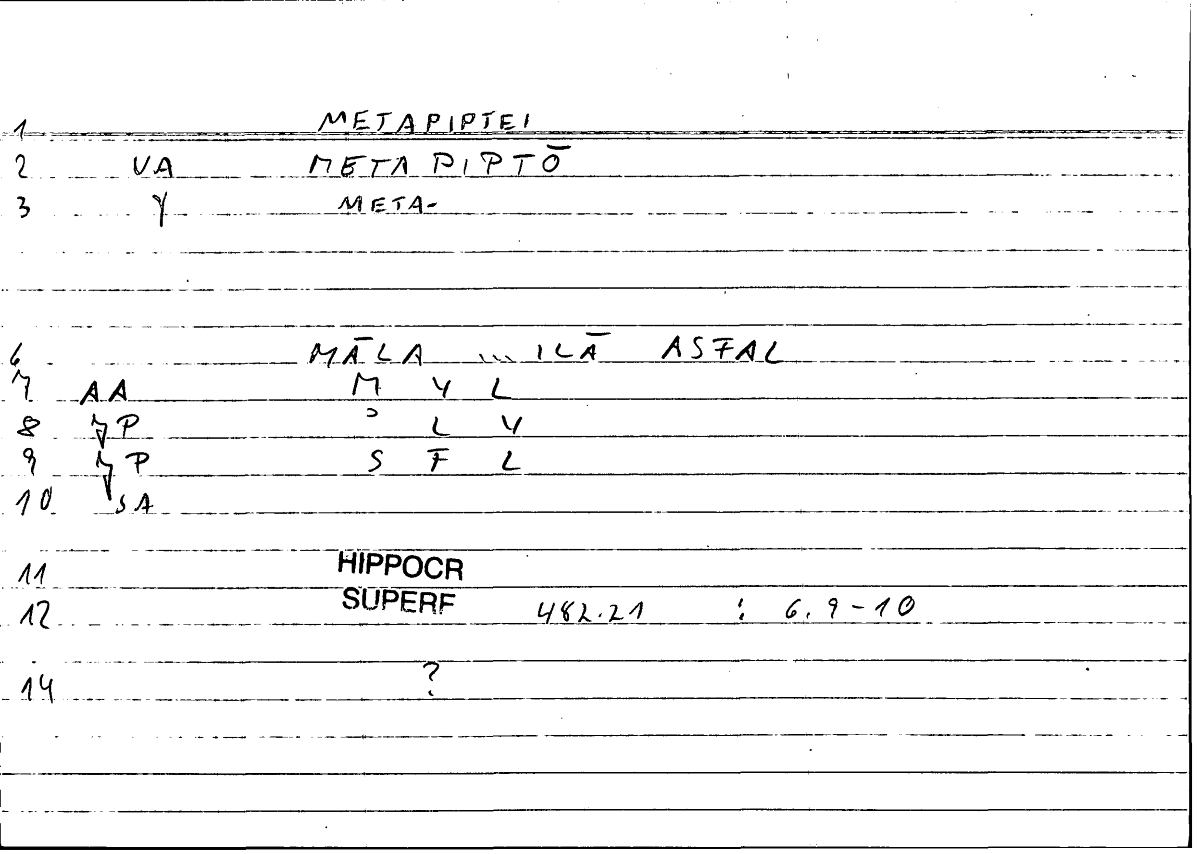 1 METAPIPTEI
2 VA METAPIPTŌ
3 γ META-
6 MĀLA ... ILĀ ASFAL
7 AA M Y L
8 P ʾ L Y
9 P S F L
10 SA
11 HIPPOCR
12 SUPERF 482.21 : 6.9-10
14 ?